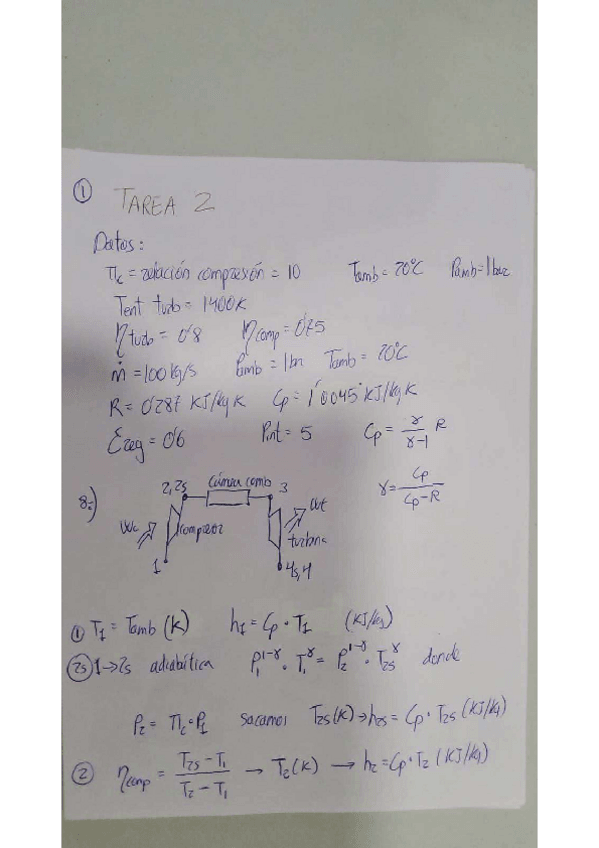 ① TAREA 2
Datos:
πc = relación compresión = 10 Tamb = 20°C Pamb = 1 bar
Tent turb = 1400K
ηturb = 0'8 ηcomp = 0'75
ṁ = 100 kg/s Pamb = 1 bar Tamb = 20°C
R = 0'287 KJ/kg K Cp = 1'0045 KJ/kg K
Ereg = 0'6 Pint = 5 Cp = γ/(γ-1) R
8:) 2,2s Cámara comb 3 γ = Cp/(Cp-R)
Wc compresor Wt turbina
1 4s,4
① T1 = Tamb (K) h1 = Cp · T1 (KJ/kg)
②s 1→2s adiabática P1^1-γ · T1^γ = P2^1-γ · T2s^γ donde
P2 = πc · P1 sacamos T2s(K) → h2s = Cp · T2s (KJ/kg)
② ηcomp = (T2s - T1)/(T2 - T1) → T2(K) → h2 = Cp · T2 (KJ/kg)